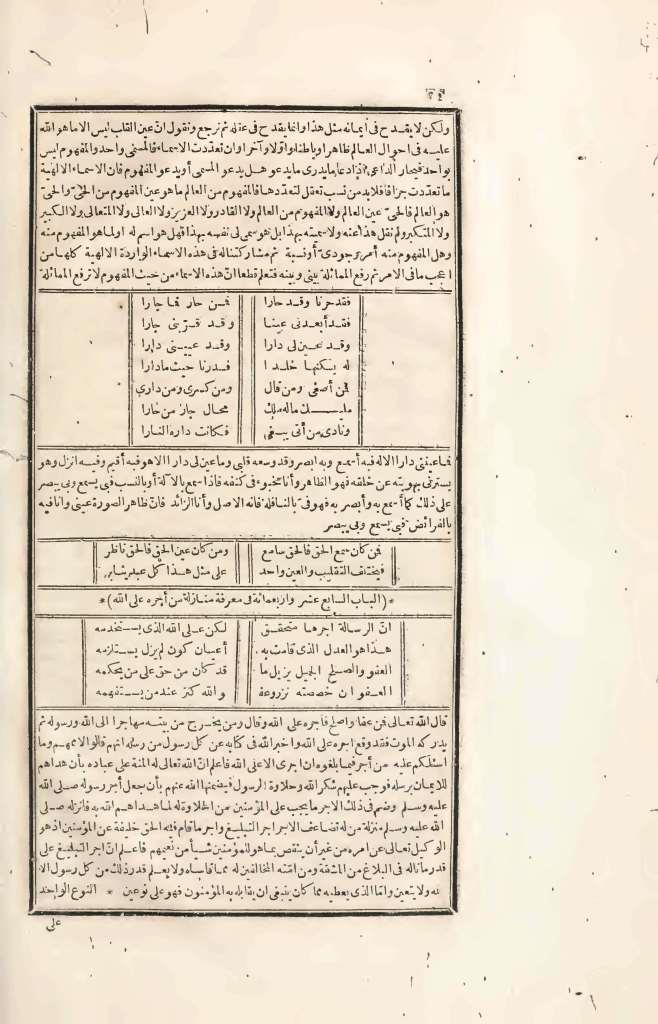 ٧٤
ولكن لا يقدح فى ايمانه مثل هذا وانما يقدح فى عقله ثم نرجع ونقول انّ عين القلب ليس الا ما هو الله
عليه فى احوال العالم ظاهرا وباطنا واوّلا وآخرا وان تعدّدت الاسماء فالمسمى واحد والمفهوم ليس
بواحد فيحار الداعى اذا دعا ما يدرى ما يدعو هل يدعو المسمى أو يدعو المفهوم فان الاسماء الالهية
ما تعدّدت جزافا فلا بد من نسب تعقل لتعدّدها فالمفهوم من العالم ما هو عين المفهوم من الحىّ والحىّ
هو العالم فالحىّ عين العالم ولا المفهوم من العالم ولا القادر ولا العزيز ولا العالى ولا المتعالى ولا الكبير
ولا المتكبر ولم نقل هذا عنه ولا سميته بهذا بل هو سمى لى نفسه بهذا فهل هو اسم له او لما هو المفهوم منه
وهل المفهوم منه أمر وجودىّ أو نسبة ثم مشاركتنا له فى هذه الاسماء الواردة الالهية كلها من
اعجب ما فى الامر ثم رفع المماثلة بينى وبينه فتعلم قطعا انّ هذه الاسماء من حيث المفهوم لا ترفع المماثلة
فقد حرنا وقد حارا فمن حار فما جارا
فقد أبعدنى عينا وقد قرّبنى جارا
وقد عين لى دارا وقد عيننى دارا
له يسكنها خلدا فدرنا حيث ما دارا
فمن أصغى ومن قال ومن كسرى ومن دارى
مليك ماله ملك محال جار من حارا
ونادى من أتى يبغى فكانت داره النارا
فما عيننى دارا الا له فبه أسمع وبه ابصر وقد وسعه قلبى وما عين لى دارا الا هو فبه أقيم وفيه انزل وهو
يسترنى بهويته عن خلقه فهو الظاهر وأنا مخبوء فى كنفه فاذا سمع بالآلة أو بالنسب فبى يسمع وبى يبصر
على ذلك كما أسمع به وأبصر به فهو فىّ بالنافلة فانه الاصل وأنا الزائد فانّ ظاهر الصورة عينى وانا فيه
بالفرائض فبى يسمع وبى يبصر
فمن كان سمع الحق فالحق سامع ومن كان عين الحق فالحق ناظر
فيختلف التقليب والعين واحد على مثل هذا كل عبد يثابر
*(الباب السابع عشر واربعمائة فى معرفة منازلة من أجره على الله)*
انّ الرسالة اجرها متحقق لكن على الله الذى يستخدمه
هذا هو العدل الذى قامت به أعيان كون لم يزل يستلزمه
العفو والصلح الجميل يزيل ما قد كان من حق على من يحكمه
العفو ان خصصته والله كنز عند من يستفهمه
قال الله تعالى فمن عفا واصلح فاجره على الله وقال ومن يخرج من بيته مهاجرا الى الله ورسوله ثم
يدركه الموت فقد وقع اجره على الله واخبر الله فى كتابه عن كل رسول من رسله انهم قالوا لاممهم وما
اسئلكم عليه من أجر فيما بلغوه ان اجرى الا على الله فاعلم انّ الله تعالى له المنة على عباده بأن هداهم
للايمان برسله فوجب عليهم شكر الله وحلاوة الرسول فيضمنها الله عنهم بأن جعل أجر رسوله صلى الله
عليه وسلم وضم فى ذلك الاجر ما يجب على المؤمنين من الحلاوة له لما هداهم الله به فانزله صلى
الله عليه وسلم منزلة من له تضاعف الاجر اجر التبليغ واجر ما قام فيه الحق خليفة عن المؤمنين اذ هو
الوكيل تعالى عن امره من غير أن ينقص بما هو للمؤمنين شيأ من نعيمهم فاعلم انّ اجر التبليغ على
قدر ما ناله فى البلاغ من المشقة ومن امّته المخالفين له مما قاساه ولا يعلم قدر ذلك من كل رسول الا
لله ولا يتعين وامّا الذى يعطيه مما كان ينبغى ان يقابله به المؤمنون فهو على نوعين * النوع الواحد
على